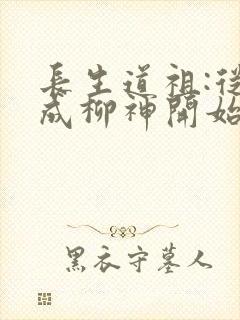 長生道祖:從
成柳神開始
黑衣守墓人